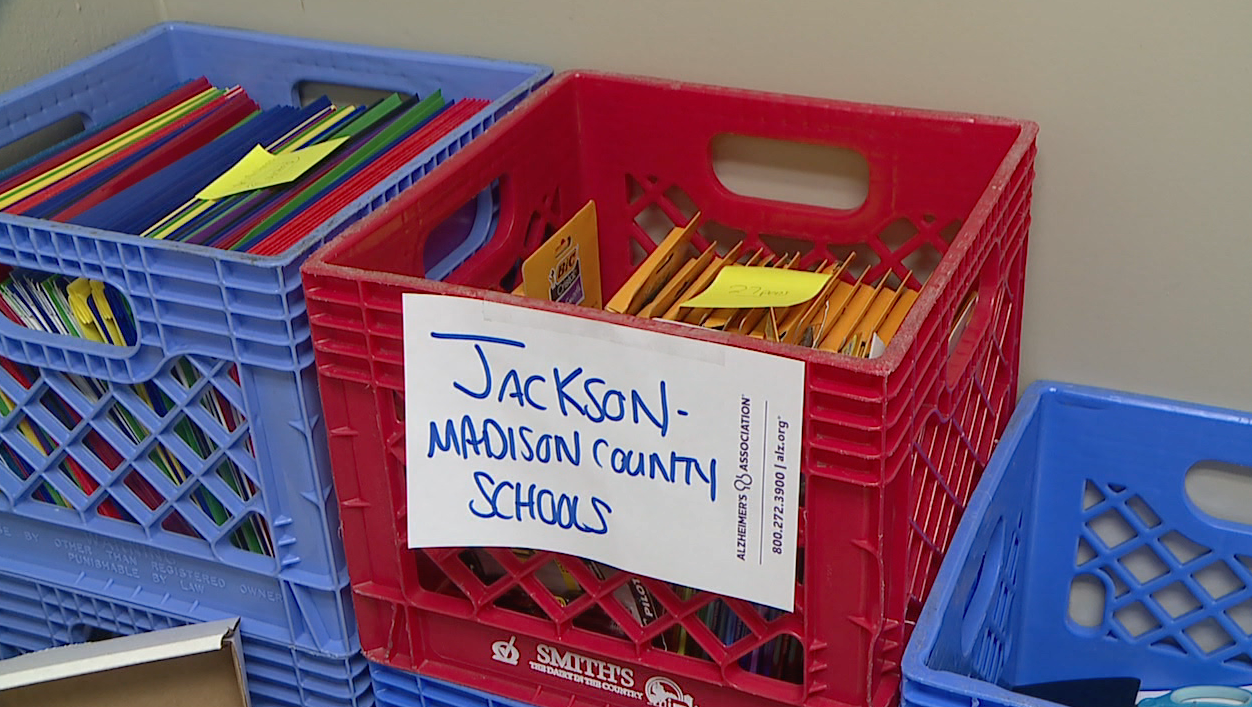 BIC
JACKSON-
MADISON COUNTY
SCHOOLS
ALZHEIMER'S ASSOCIATION
800.272.3900 | alz.org®
PILOT
SMITH'S
THE DAIRY IN THE COUNTRY
USE BY OTHER THAN REGISTERED OWNER
PUNISHABLE BY
LAW